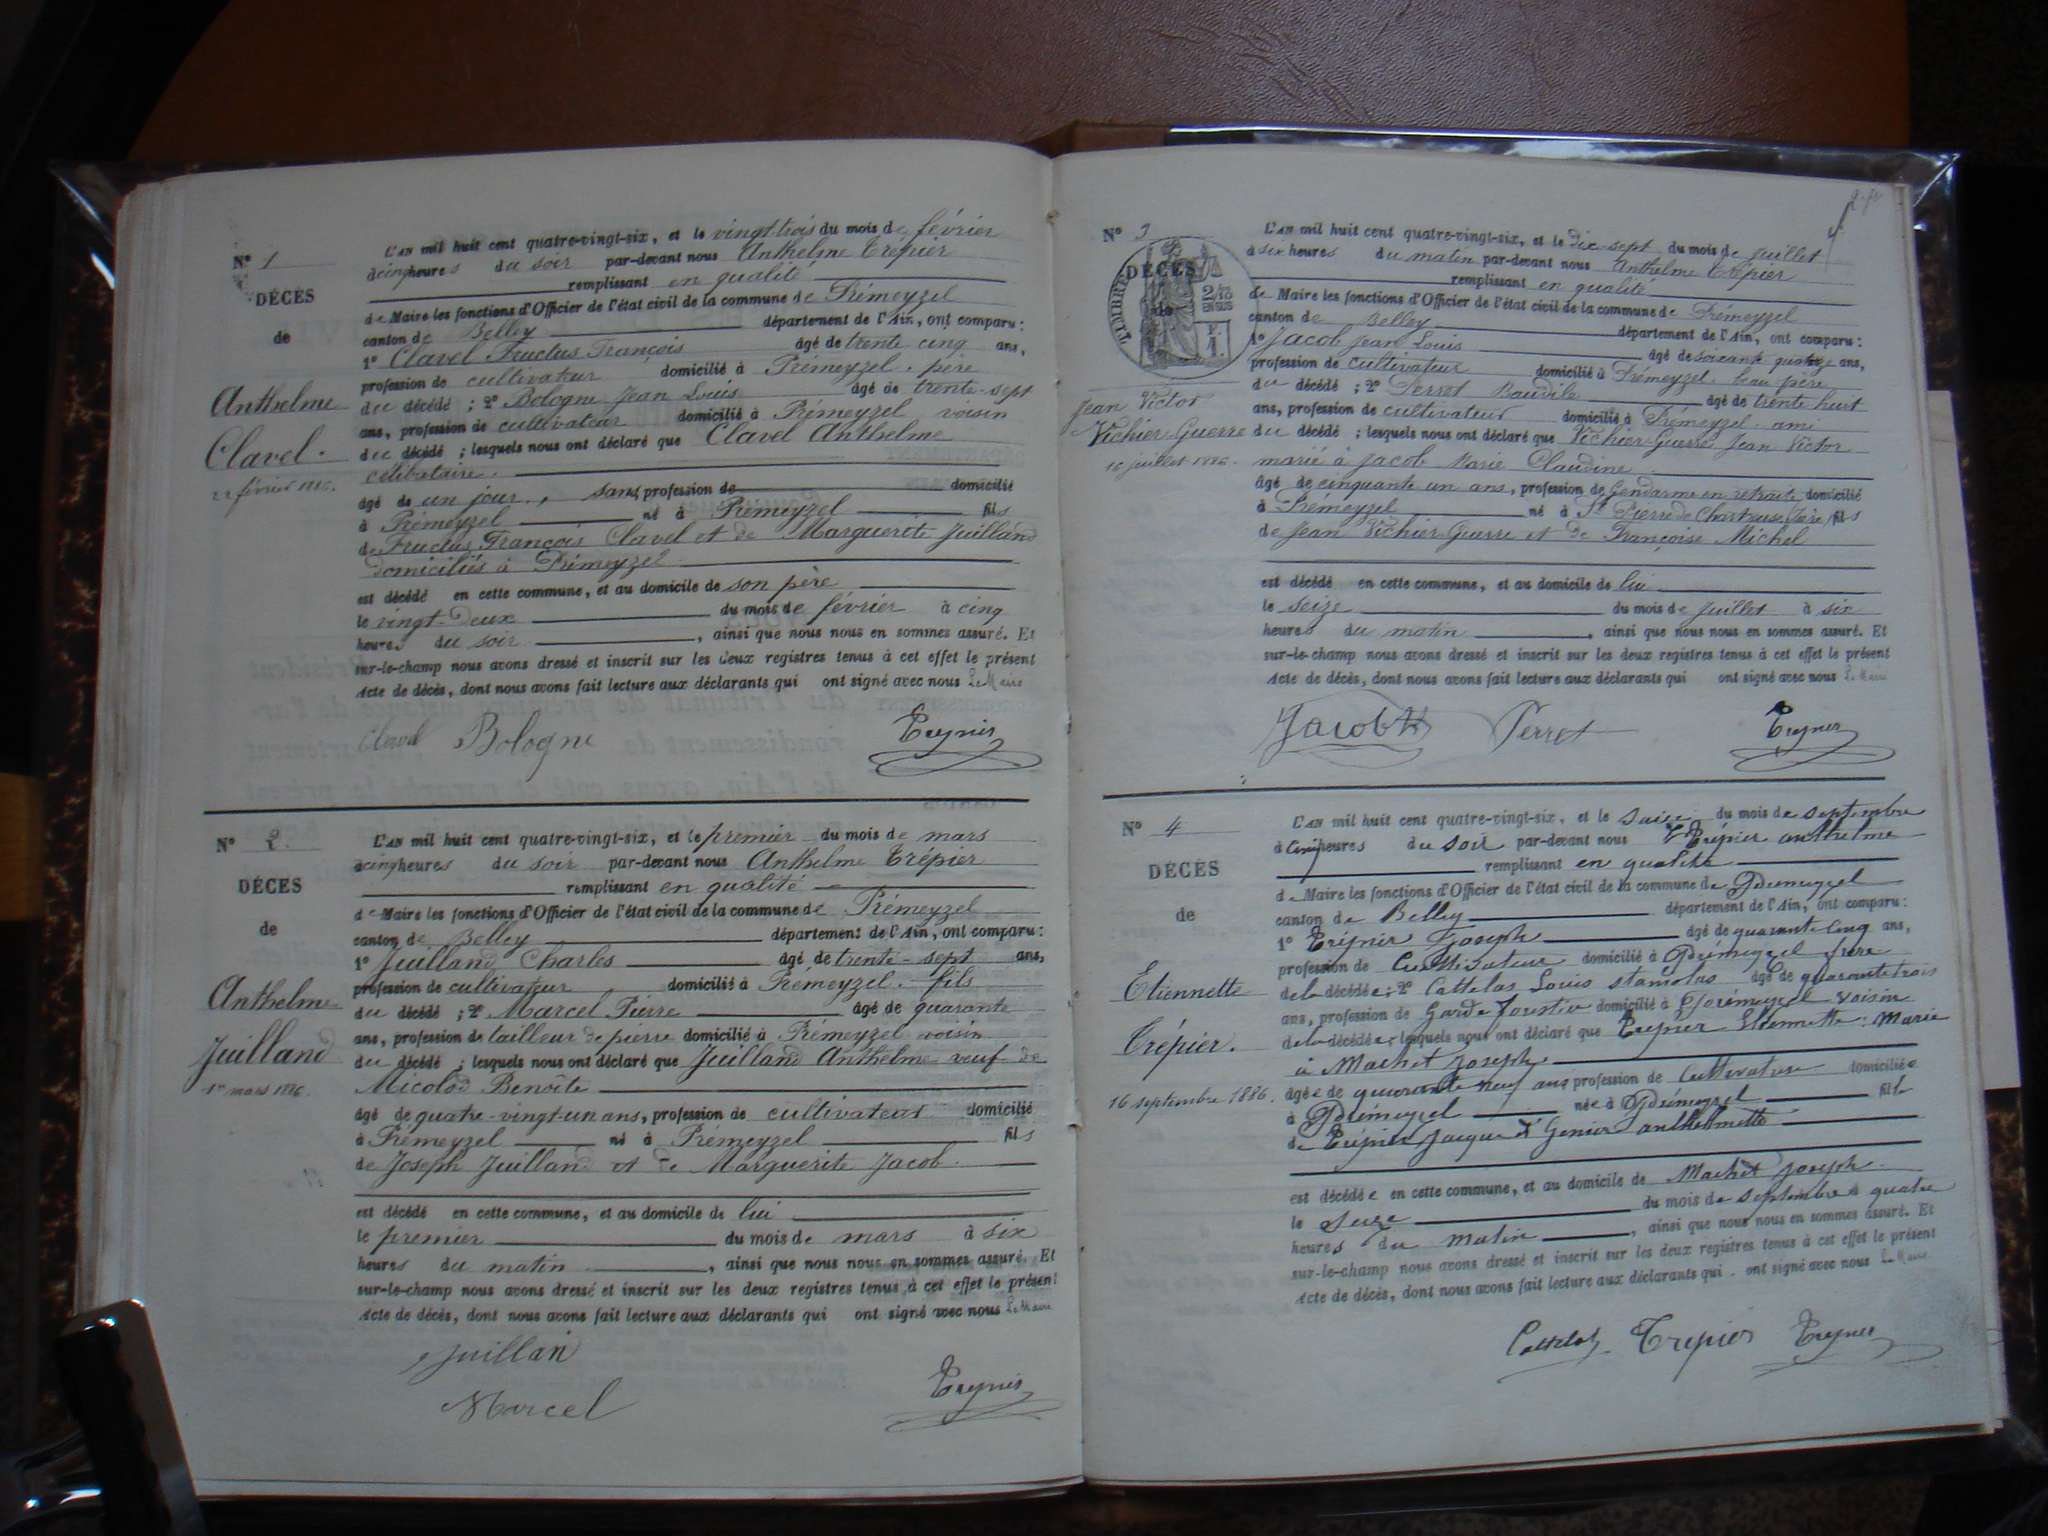 N° 1
DÉCÈS
de
Anthelme
Clavel.
22 février 1886.
L'AN mil huit cent quatre-vingt-six, et le vingt-trois du mois de février
à cinq heures du soir par-devant nous Anthelme Trépier
remplissant en qualité
de Maire les fonctions d'Officier de l'état civil de la commune de Prémeyzel
canton de Belley département de l'Ain, ont comparu:
1° Clavel Fructus François âgé de trente cinq ans,
profession de cultivateur domicilié à Prémeyzel. père
du décédé; 2° Bologne Jean Louis âgé de trente-sept
ans, profession de cultivateur domicilié à Prémeyzel voisin
du décédé; lesquels nous ont déclaré que Clavel Anthelme
célibataire.
âgé de un jour, sans profession de domicilié
à Prémeyzel né à Prémeyzel fils
de Fructus François Clavel et de Marguerite Juilland
domiciliés à Prémeyzel
est décédé en cette commune, et au domicile de son père
le vingt-deux du mois de février à cinq
heures du soir, ainsi que nous nous en sommes assuré. Et
sur-le-champ nous avons dressé et inscrit sur les deux registres tenus à cet effet le présent
Acte de décès, dont nous avons fait lecture aux déclarants qui ont signé avec nous Le Maire
Clavel Bologne Trépier
N° 2.
DÉCÈS
de
Anthelme
Juilland
1er mars 1886.
L'AN mil huit cent quatre-vingt-six, et le premier du mois de mars
à cinq heures du soir par-devant nous Anthelme Trépier
remplissant en qualité
de Maire les fonctions d'Officier de l'état civil de la commune de Prémeyzel
canton de Belley département de l'Ain, ont comparu:
1° Juilland Charles âgé de trente-sept ans,
profession de cultivateur domicilié à Prémeyzel. fils
du décédé; 2° Marcel Pierre âgé de quarante
ans, profession de tailleur de pierre domicilié à Prémeyzel voisin
du décédé; lesquels nous ont déclaré que Juilland Anthelme veuf de
Micolod Benoîte
âgé de quatre-vingt-un ans, profession de cultivateur domicilié
à Prémeyzel né à Prémeyzel fils
de Joseph Juilland et de Marguerite Jacob.
est décédé en cette commune, et au domicile de lui
le premier du mois de mars à six
heures du matin, ainsi que nous nous en sommes assuré. Et
sur-le-champ nous avons dressé et inscrit sur les deux registres tenus à cet effet le présent
Acte de décès, dont nous avons fait lecture aux déclarants qui ont signé avec nous Le Maire
Juillan
Marcel Trépier
N° 3
DÉCÈS
de
TIMBRE
2/10 EN SUS
Jean Victor
Vichier-Guerre
16 juillet 1886.
L'AN mil huit cent quatre-vingt-six, et le dix-sept du mois de juillet
à six heures du matin par-devant nous Anthelme Trépier
remplissant en qualité
de Maire les fonctions d'Officier de l'état civil de la commune de Prémeyzel
canton de Belley département de l'Ain, ont comparu:
1° Jacob Jean Louis âgé de soixante quatorze ans,
profession de cultivateur domicilié à Prémeyzel. beau père
du décédé; 2° Perret Baudile âgé de trente huit
ans, profession de cultivateur domicilié à Prémeyzel. ami
du décédé; lesquels nous ont déclaré que Vichier-Guerre Jean Victor
marié à Jacob Marie Claudine
âgé de cinquante un ans, profession de Gendarme en retraite domicilié
à Prémeyzel né à St Pierre de Chartreuse, Isère, fils
de Jean Vichier Guerre et de Françoise Michel
est décédé en cette commune, et au domicile de lui
le seize du mois de juillet à six
heures du matin, ainsi que nous nous en sommes assuré. Et
sur-le-champ nous avons dressé et inscrit sur les deux registres tenus à cet effet le présent
Acte de décès, dont nous avons fait lecture aux déclarants qui ont signé avec nous Le Maire
Jacob Perret Trépier
N° 4
DÉCÈS
de
Etiennette
Trépier.
16 septembre 1886.
L'AN mil huit cent quatre-vingt-six, et le saise du mois de septembre
à cinq heures du soir par-devant nous Trépier anthelme
remplissant en qualité
de Maire les fonctions d'Officier de l'état civil de la commune de Prémeyzel
canton de Belley département de l'Ain, ont comparu:
1° Trépier Joseph âgé de quarante cinq ans,
profession de Cultivateur domicilié à Prémeyzel frère
de la décédée; 2° Cattelas Louis stanislas âgé de quarante trois
ans, profession de Garde forestier domicilié à Prémeyzel voisin
de la décédée; lesquels nous ont déclaré que Trépier Etiennette. Marie
à Machet Joseph
âgée de quarante neuf ans profession de Cultivatrice domiciliée
à Prémeyzel née à Prémeyzel fille
de Trépier Jacque et Genier anthelmette
est décédée en cette commune, et au domicile de Machet Joseph
le seize du mois de septembre à quatre
heures du matin, ainsi que nous nous en sommes assuré. Et
sur-le-champ nous avons dressé et inscrit sur les deux registres tenus à cet effet le présent
Acte de décès, dont nous avons fait lecture aux déclarants qui ont signé avec nous Le Maire
Cattelas Trépier Trépier